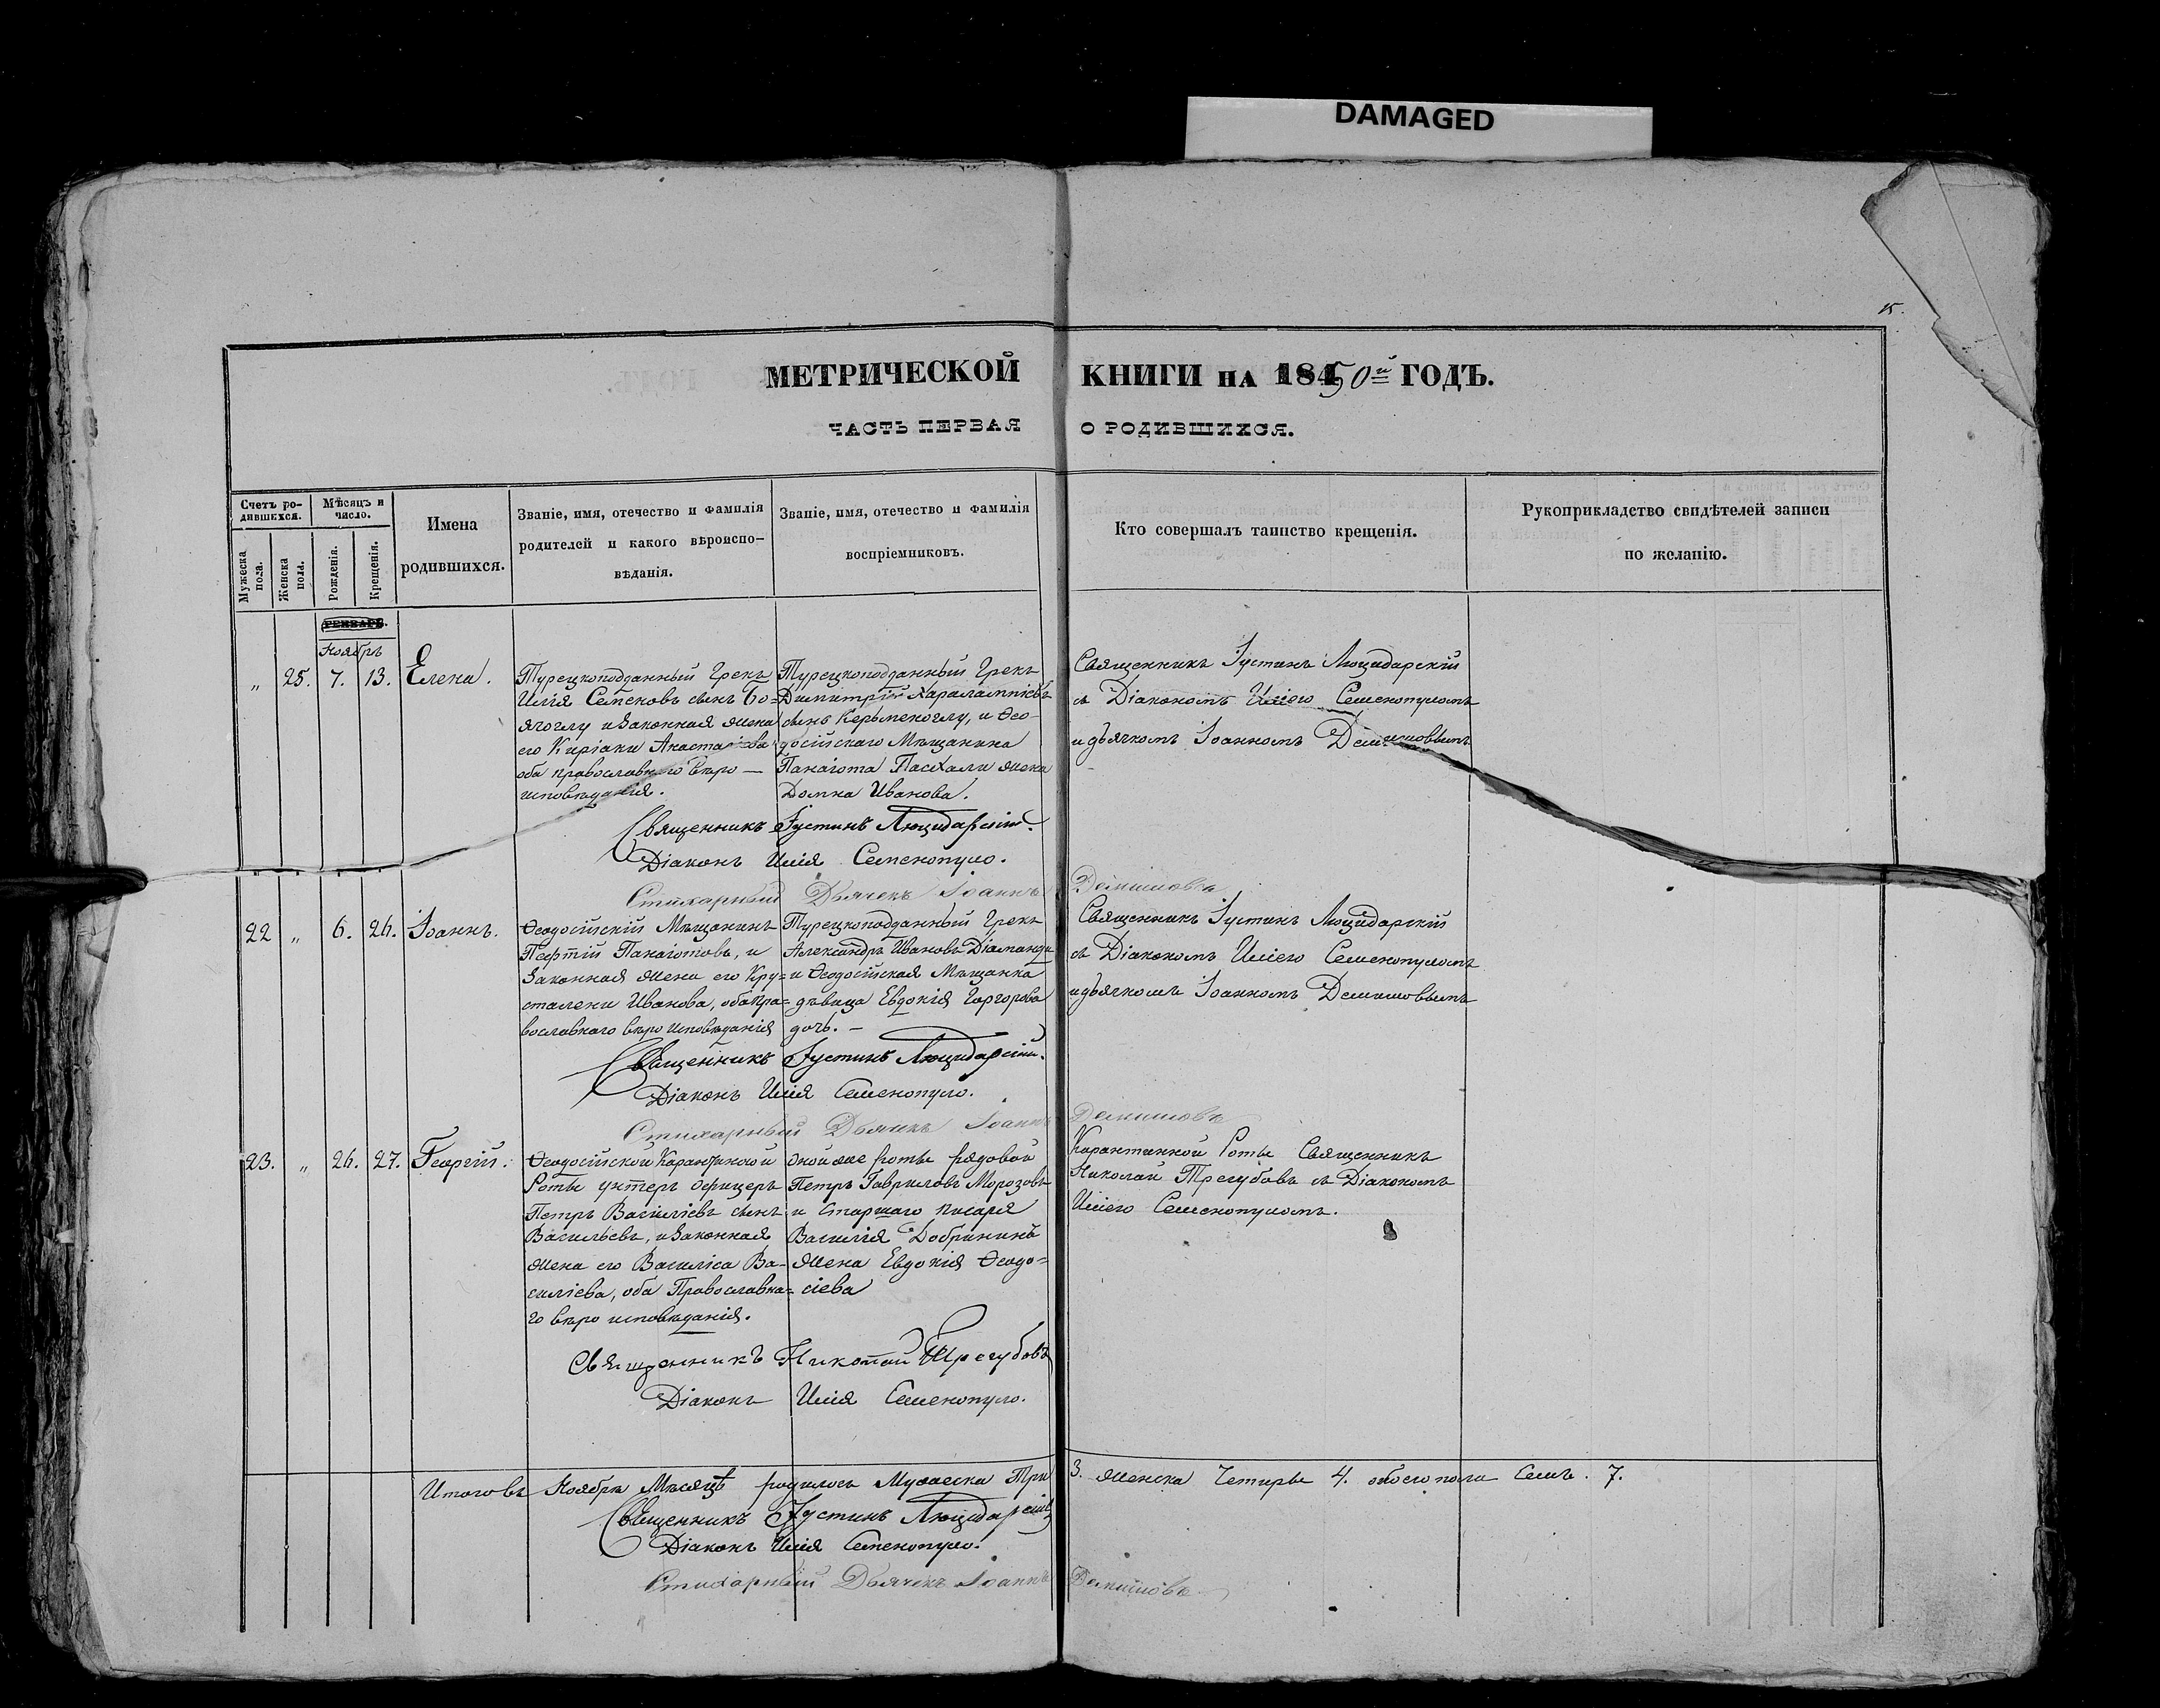 DAMAGED
15.
МЕТРИЧЕСКОЙ КНИГИ на 1850й ГОДЪ.
ЧАСТЬ ПЕРВАЯ О РОДИВШИХСЯ.
Счетъ родившихся.
Мужеска пола.
Женска пола.
Мѣсяцъ и число.
Рожденія.
Крещенія.
Имена родившихся.
Званіе, имя, отечество и фамилія
родителей и какого вѣроиспо-
вѣданія.
Званіе, имя, отечество и фамилія
воспріемниковъ.
Кто совершалъ таинство крещенія.
Рукоприкладство свидѣтелей записи
по желанію.
Ноябрь
„ 25. 7. 13. Елена.
Турецкоподданный Грекъ
Илія Семеновъ сынъ Бо-
ячоглу и законная жена
его Киріаки Анастасова
оба православнаго вѣро-
исповѣданія.
Турецкоподданный Грекъ
Димитрій Харалампіевъ
сынъ Керьменоглу, и Ѳео-
досійскаго Мѣщанина
Панаіота Пасхали жена
Домна Иванова.
Священникъ Іустинъ Люцидарскій
съ Діакономъ Иліею Семенопуломъ
и дьячкомъ Іоанномъ Демишовымъ
Священникъ Іустинъ Люцидарскій.
Діаконъ Илія Семенопуло.
Стихарный Дьячекъ Іоаннъ Демишовъ
22 „ 6. 26. Іоаннъ.
Ѳеодосійскій Мѣщанинъ
Пефтій Панаіотовъ, и
Законная жена его Кру-
сталени Иванова, оба пра=
вославнаго вѣроисповѣданія
Турецкоподданный Грекъ
Александръ Ивановъ Діаманди
и Ѳеодосійская Мѣщанка
дѣвица Евдокія Горгорова
дочь. —
Священникъ Іустинъ Люцидарскій
съ Діакономъ Иліею Семенопуломъ
и дьячкомъ Іоанномъ Демишовымъ
Священникъ Іустинъ Люцидарскій.
Діаконъ Илія Семенопуло.
Стихарный Дьячекъ Іоаннъ Демишовъ
23. „ 26. 27. Георгій.
Ѳеодосійской Карантинной
Роты унтеръ офицеръ
Петръ Василіевъ сынъ
Васильевъ, и Законная
жена его Василіса Ва-
силіева, оба Православна=
го вѣро исповѣданія.
Оной же роты рядовой
Петръ Гавриловъ Морозовъ
и Старшаго писаря
Василія Добринина
жена Евдокія Ѳеодо=
сіева
Карантинной Роты Священникъ
Николай Трегубовъ съ Діакономъ
Иліею Семенопуломъ.
Священникъ Николай Трегубовъ
Діаконъ Илія Семенопуло.
Итого въ Ноябрѣ Мѣсяцѣ родилось Мужеска Три 3. женска Четыре 4. обоего пола Семь. 7.
Священникъ Іустинъ Люцидарскій
Діаконъ Илія Семенопуло.
Стихарный Дьячекъ Іоаннъ Демишовъ